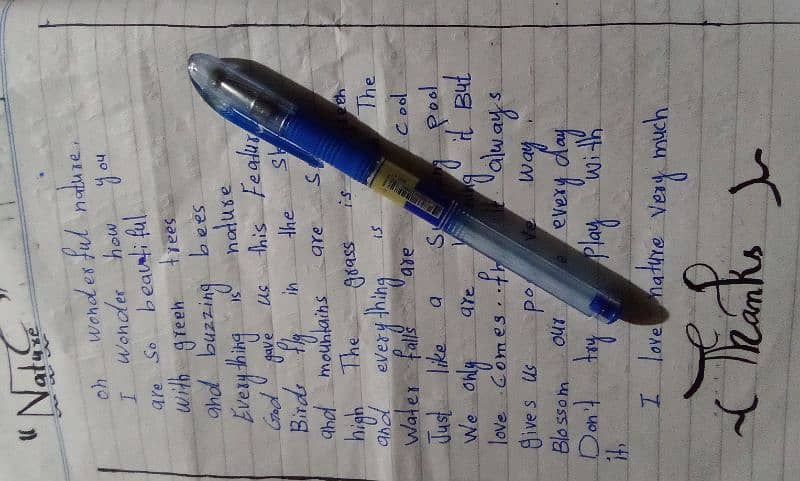 " Nature "
oh wonderful nature,
I wonder how you
are so beautiful
with green trees
and buzzing bees
Everything is nature
God gave us this Featur
Birds fly in the
and mountains are
high The grass is
and everything is The
Water falls are cool
Just like a pool
We only are it But
love comes.. it always
gives us way.
Blossom our every day
Don't try Play with
it,
I love nature very much
Thanks